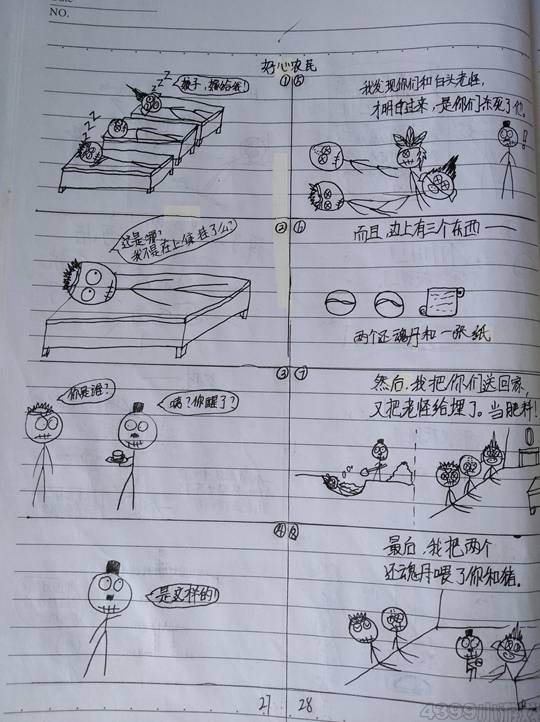 NO.
好心农民
①
嫂子,嫁给我!
②
这是哪?
我不是在上集挂了么?
③
你是谁?
咦?你醒了?
④
是这样的!
27
⑤
我发现你们和白头老怪,
才明白过来,是你们杀死了他。
!
⑥
而且,边上有三个东西——
两个还魂丹和一张纸
⑦
然后,我把你们送回家,
又把老怪给埋了。当肥料!
⑧
最后,我把两个
还魂丹喂了你和猪。
28